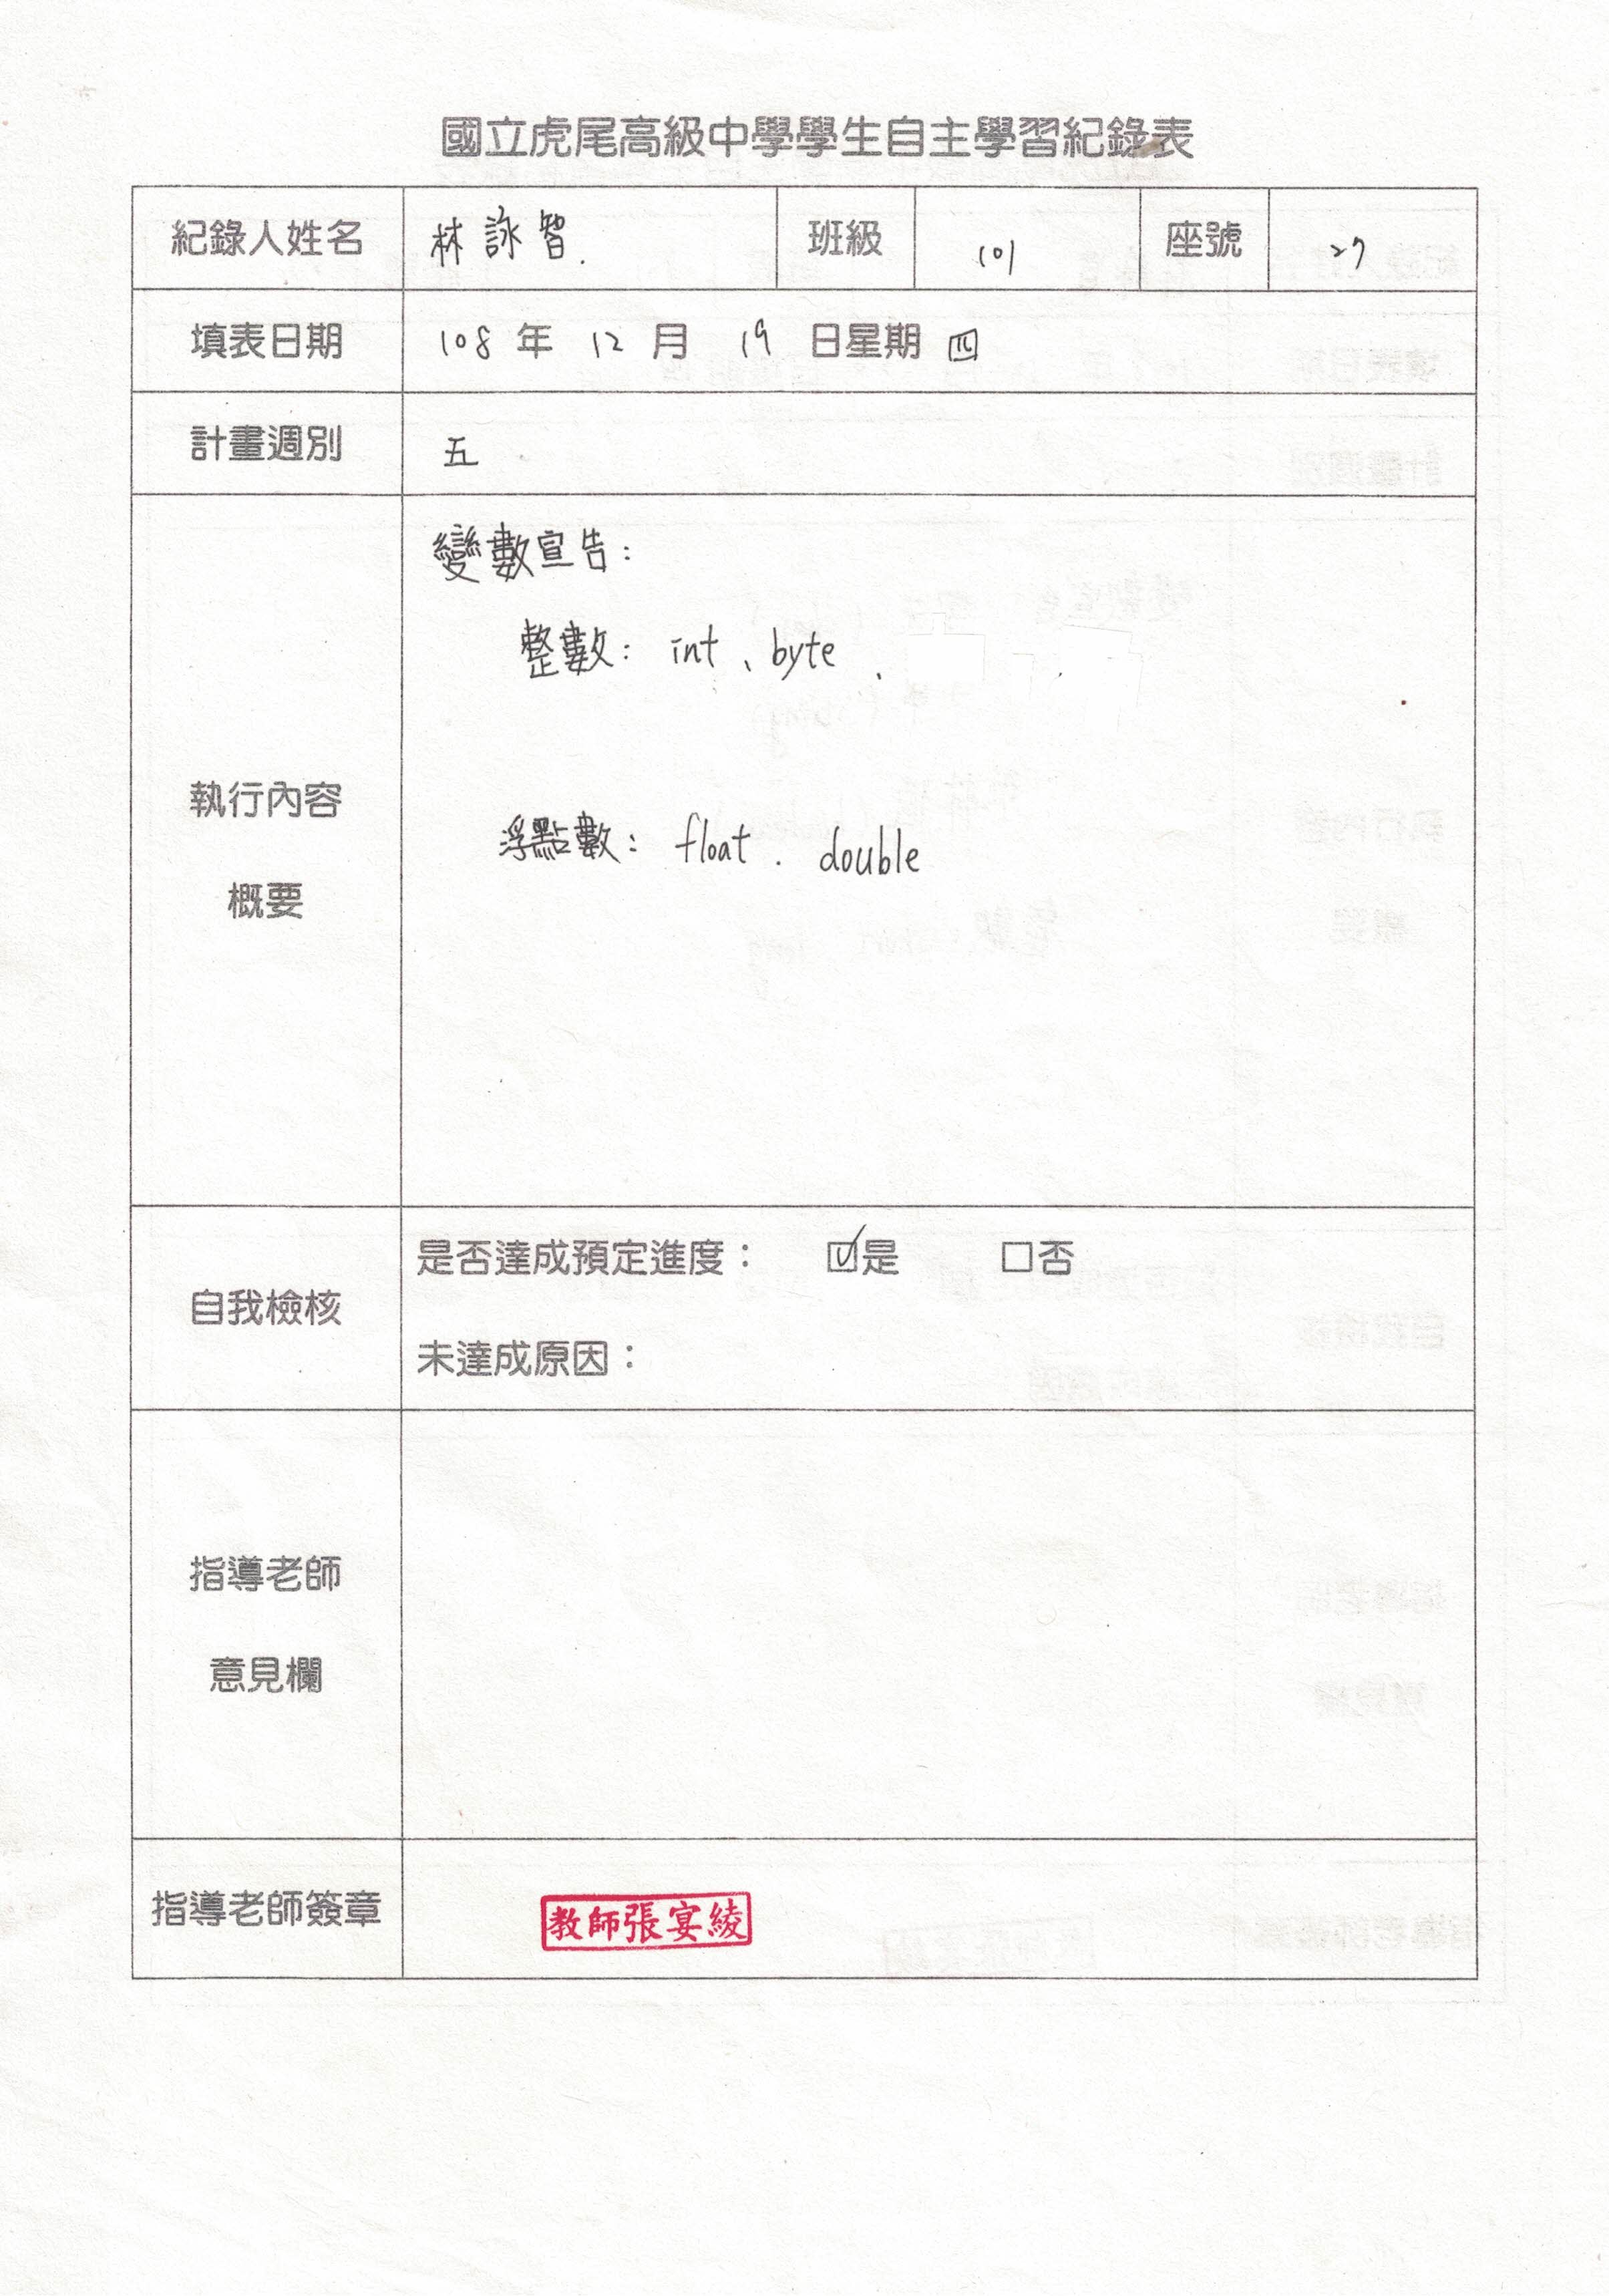 國立虎尾高級中學學生自主學習紀錄表
紀錄人姓名 林詠智. 班級 101 座號 27
填表日期 108 年 12 月 19 日星期 四
計畫週別 五
變數宣告：
整數： int 、 byte .
執行內容
浮點數： float . double
概要
是否達成預定進度： ☑是 □否
自我檢核
未達成原因：
指導老師
意見欄
指導老師簽章 教師張宴綾